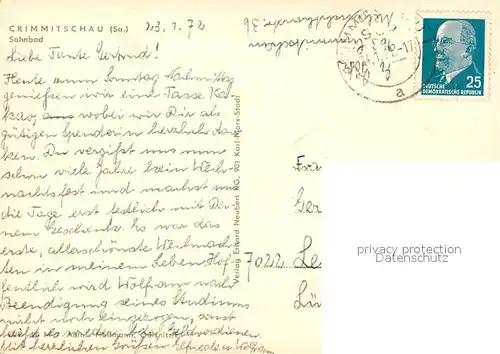 CRIMMITSCHAU (Sa.)
Sahnbad
23.1.72
Liebe Tante Gertrud!
Heute zum Sonntag Nachmittag
genießen wir eine Tasse Ka-
kao, wobei wir Dir als
gütigen Spenderin herzlich dan-
ken. Du vergißt uns nun
schon viele Jahre kein Weih-
nachtsfest und machst uns
die Tage erst festlich mit Dei-
nem Geschenke. Es war das
erste, allerschönste Weihnach-
ten in meinem Leben. Hof-
fentlich wird Wolfram nach
Beendigung seines Studiums
nicht noch eingezogen,
damit es wieder Geldverdienen
Mit herzlichen Grüßen Elfriede u. Wolfram
Verlag Erhard Neubert KG, 901 Karl-Marx-Stadt
Crimmitschau
36
a
25
DEUTSCHE
DEMOKRATISCHE REPUBLIK
Fra
Ger
7022 Le
Lü
privacy protection
Datenschutz